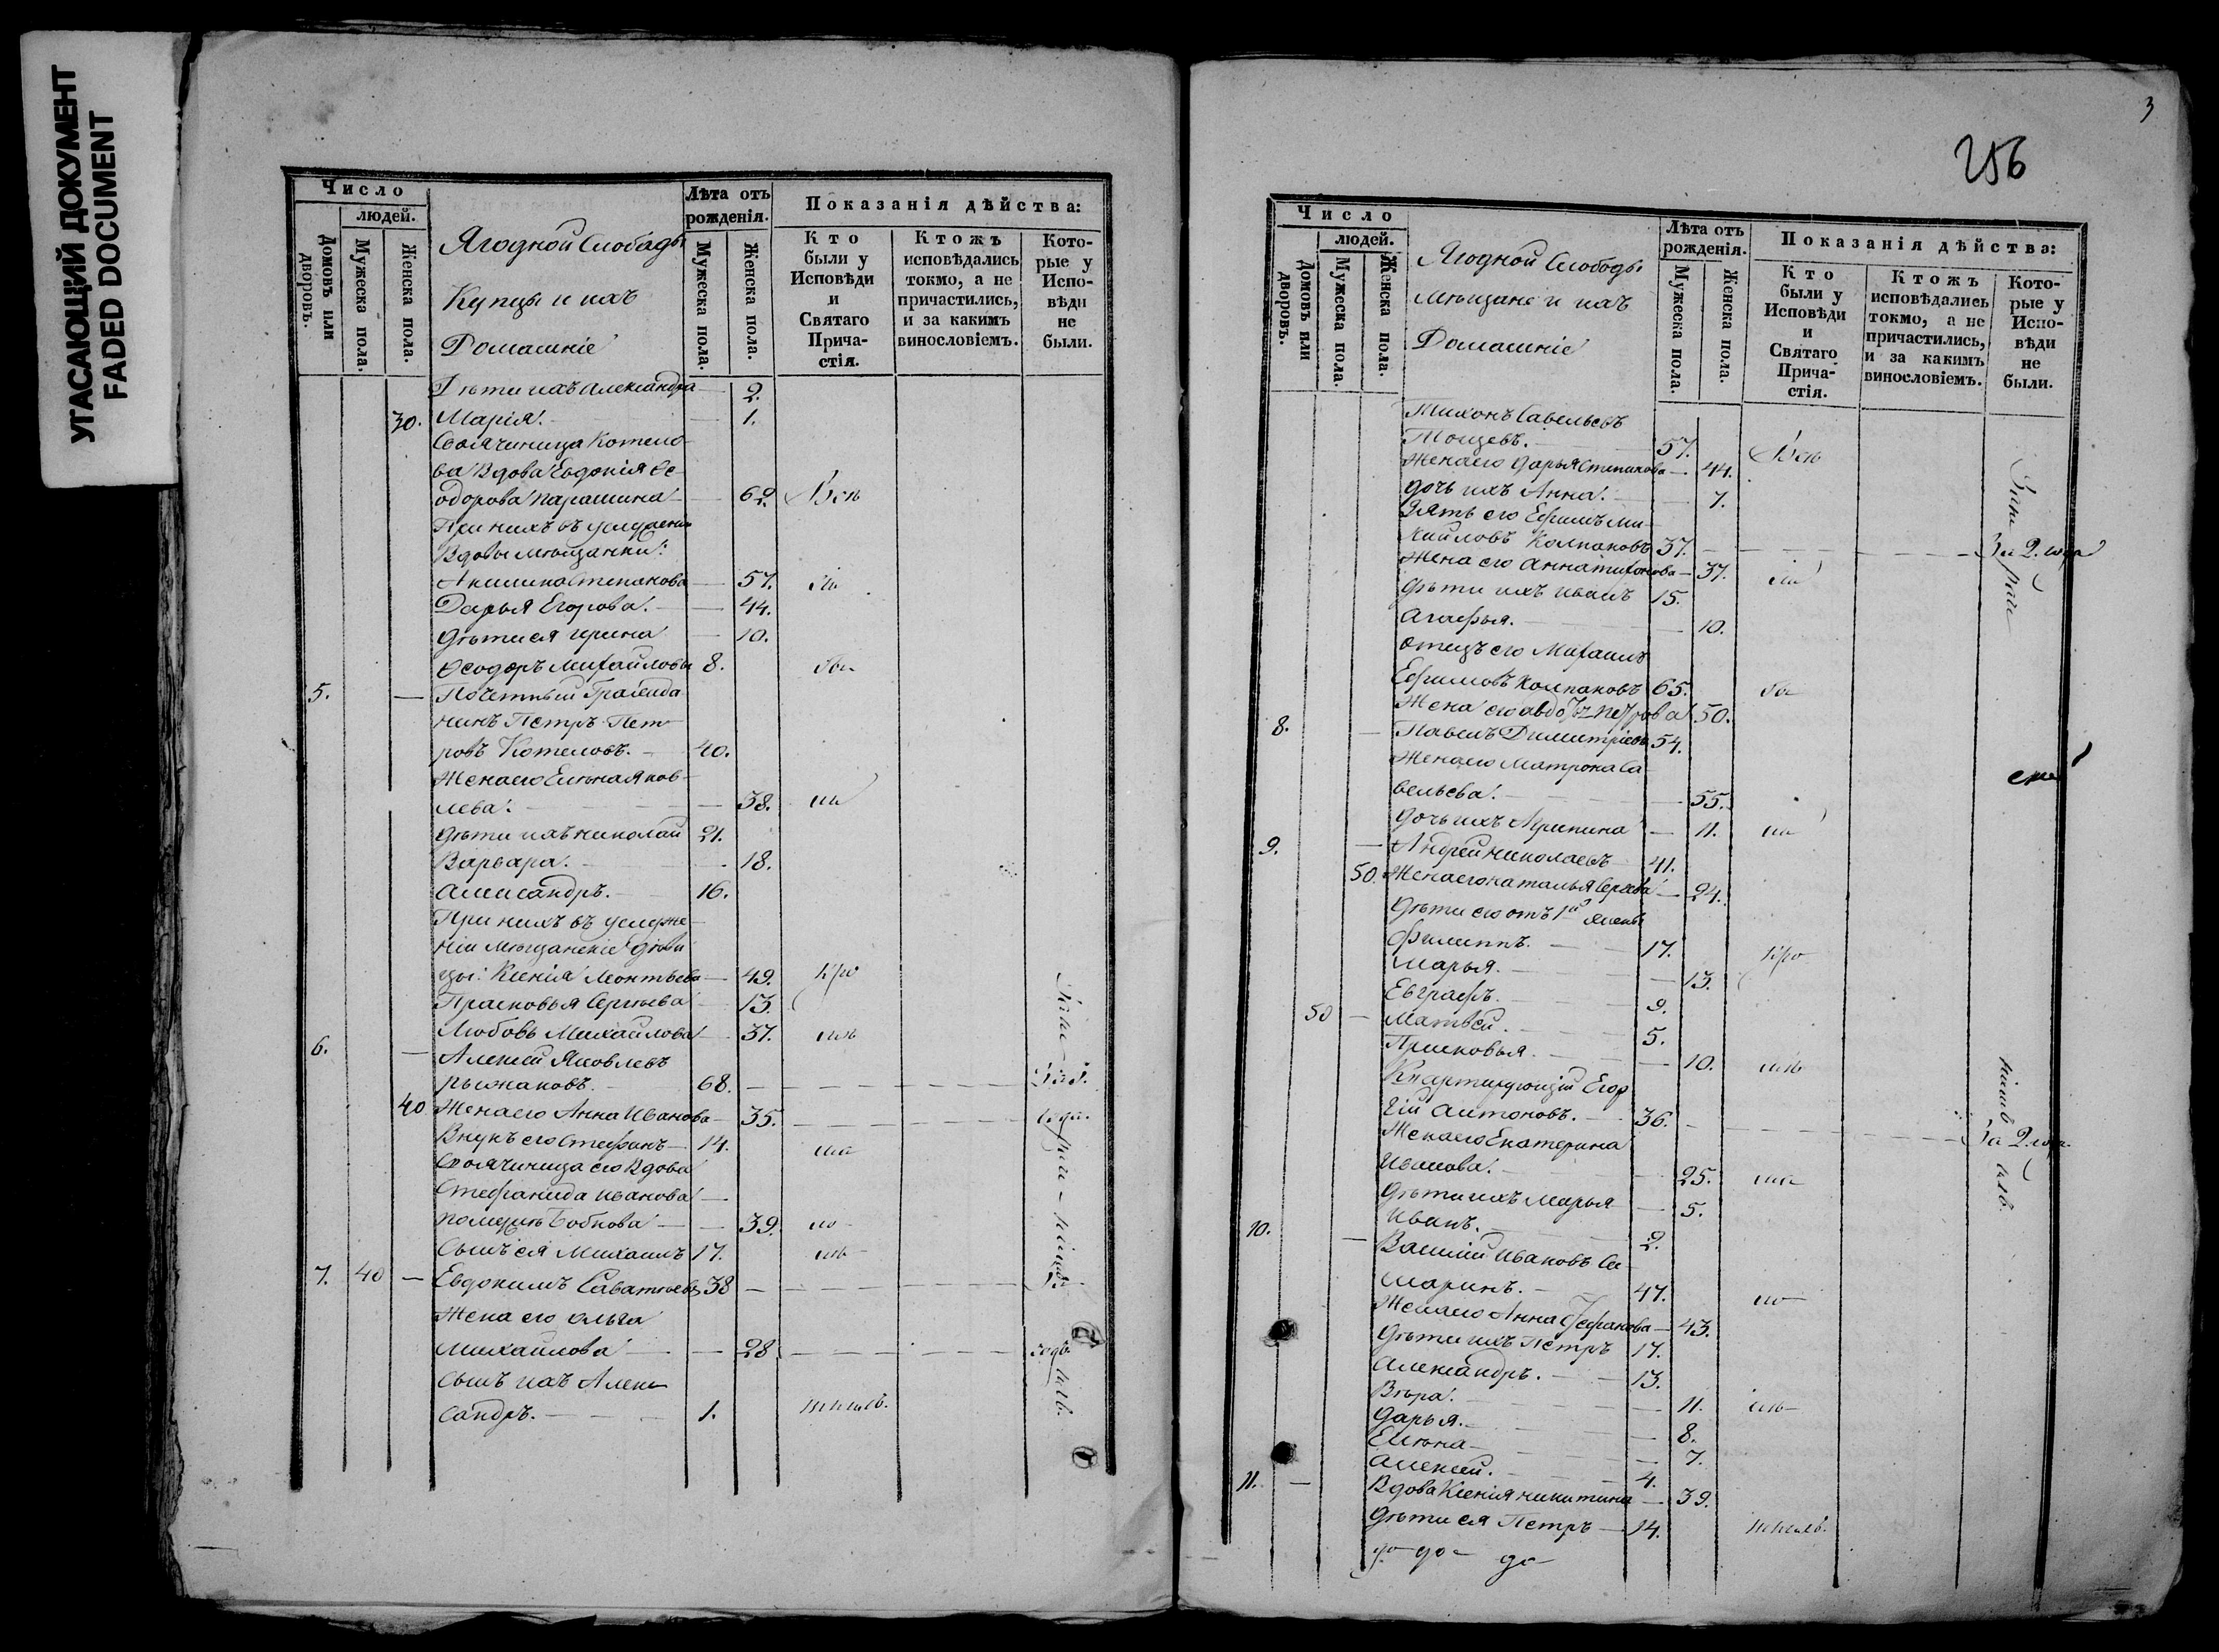 УГАСАЮЩИЙ ДОКУМЕНТ
FADED DOCUMENT
Число
людей.
Домовъ или дворовъ.
Мужеска пола.
Женска пола.
Ягодной Слободы
Купцы и ихъ
Домашніе
Лѣта отъ рожденія.
Мужеска пола.
Женска пола.
Показанія дѣйства:
Кто были у Исповѣди и Святаго Причастія.
Ктожъ исповѣдались токмо, а не причастились, и за какимъ винословіемъ.
Которые у Исповѣди не были.
Дѣти ихъ Александра — 2.
30. Марія. — 1.
Своячиница Котело-
ва Вдова Евдокія Ѳе-
одорова Парашина — 62. Всѣ
При нихъ въ услуженіи
Вдовы мѣщанки:
Акилина Степанова — 57.
Дарья Егорова. — 44.
Дѣти ея Ирина — 10.
Ѳеодоръ Михайловы 8. бы
5. — Почетный Гражда
нинъ Петръ Пет-
ровъ Котеловъ. — 40.
Жена его Елѣна Яков-
лева. — 38. ли
Дѣти ихъ Николай 21.
Варвара. — 18.
Александръ. — 16.
При нихъ въ услуже-
ніи Мѣщанскіе Дѣви
цы: Ксенія Леонтьева — 49.
Прасковья Сергѣева — 13.
Любовь Михайлова — 37.
6. — Алексѣй Яковлевъ
68. —
40 Жена его Анна Иванова — 35. — года.
Внукъ его Стефанъ — 14.
Своячиница его Вдова
Стефанида Иванова —
Бобкова — 39.
Сынъ ея Михаилъ 17.
7. 40 — Евдокимъ Савватѣевъ 38 —
Жена его Ольга
Михайлова — 28 —
Сынъ ихъ Алек-
сандръ. — 1.
3
256
Число
людей.
Домовъ или дворовъ.
Мужеска пола.
Женска пола.
Ягодной Слободы
Мѣщане и ихъ
Домашніе
Лѣта отъ рожденія.
Мужеска пола.
Женска пола.
Показанія дѣйства:
Кто были у Исповѣди и Святаго Причастія.
Ктожъ исповѣдались токмо, а не причастились, и за какимъ винословіемъ.
Которые у Исповѣди не были.
Тихонъ Савельевъ
57. Всѣ
Жена его Дарья Степанова — 44.
Дочь ихъ Анна. — 7.
Зять его Ефимъ Ми-
хайловъ Колпаковъ 37. — За 2. года
Жена его Анна Тихонова — 37. ли
Дѣти ихъ Иванъ 15.
Агафья. — 10.
Отецъ его Михаилъ
Ефимовъ Колпаковъ 65. бы
Жена его Авдотья Петрова 50.
8. — Павелъ Димитріевъ 54.
Жена его Матрона Са-
вельева. — 55.
Дочь ихъ Агрипина — 11.
9. — Андрей Николаевъ 41.
50. Жена его Наталья — 24.
Дѣти его отъ 1й жены
Филиппъ. — 17.
Марья. — 13.
Евграфъ. — 9.
50 — Матвѣй. — 5.
Прасковья. — 10.
Квартирующій Егор
гій Антоновъ. — 36. — За 2. года
Жена его Екатерина
Иванова. — 25.
Дѣти ихъ Марья — 5.
Иванъ. — 2.
10. — Василій Ивановъ Са-
маринъ. — 47.
Жена его Анна Стефанова — 43.
Дѣти ихъ Петръ 17.
Александръ. — 13.
Вѣра. — 11.
Дарья. — 8.
Елѣна — 7.
Алексѣй. — 4.
11. — Вдова Ксенія Никитина — 39.
Дѣти ея Петръ — 14.